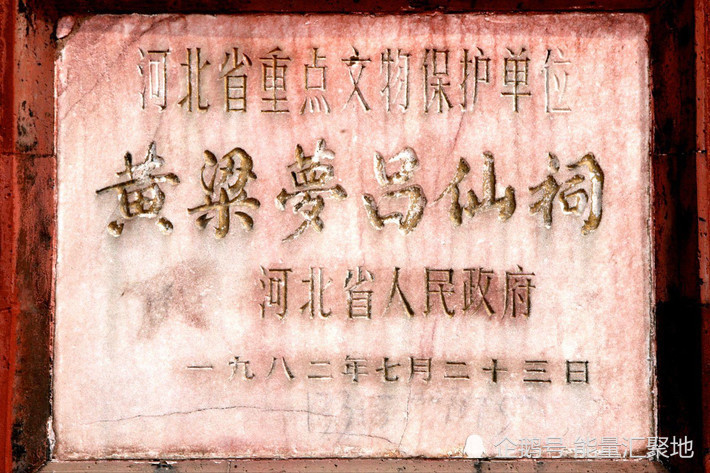 河北省重点文物保护单位
黄粱夢吕仙祠
河北省人民政府
一九八二年七月二十三日
企鹅号·能量汇聚地